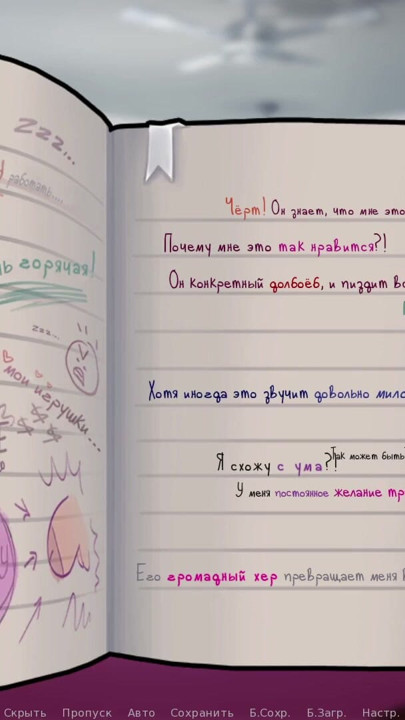 zzz...
работать...
ь горячая!
zzz...
мои игрушки...
Чёрт! Он знает, что мне это
Почему мне это так нравится?!
Он конкретный долбоёб, и пиздит во
Хотя иногда это звучит довольно мило
Так может быть
Я схожу с ума?!
У меня постоянное желание тр
Его громадный хер превращает меня в
Скрыть Пропуск Авто Сохранить Б.Сохр. Б.Загр. Настр.